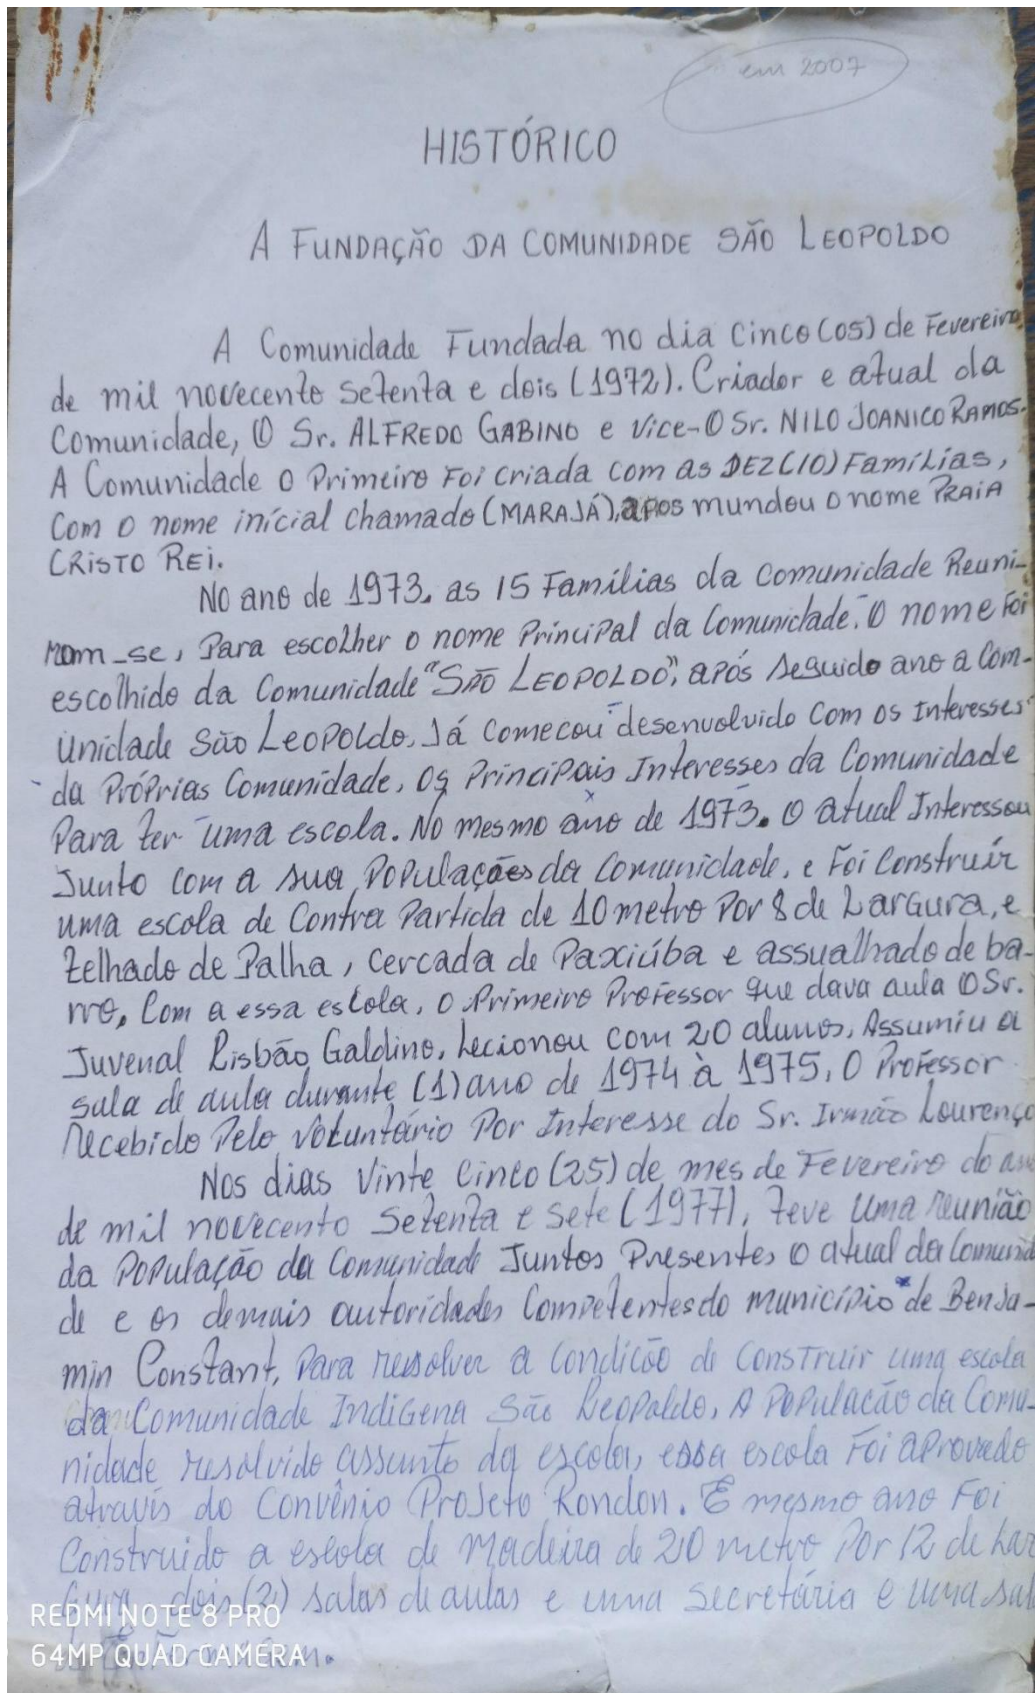 em 2007
HISTÓRICO
A FUNDAÇÃO DA COMUNIDADE SÃO LEOPOLDO
A Comunidade Fundada no dia cinco (05) de Fevereiro
de mil novecento setenta e dois (1972). Criador e atual da
Comunidade, O Sr. ALFREDO GABINO e vice-O Sr. NILO JOANICO RAMOS.
A Comunidade o Primeiro Foi criada com as DEZ (10) Famílias,
Com o nome inícial chamado (MARAJÁ), apos mundou o nome PRAIA
CRISTO REI.
No ano de 1973. as 15 Famílias da comunidade Reuni-
ram-se, Para escolher o nome Principal da Comunidade. O nome Foi
escolhido da Comunidade "SÃO LEOPOLDO", após seguido ano a Com-
unidade São Leopoldo, Já começou desenvolvido com os Interesses
da Próprias Comunidade, Os Principais Interesses da Comunidade
Para ter uma escola. No mesmo ano de 1973. O atual Interessou
Junto com a sua Populações da Comunidade, e Foi Construír
uma escola de Contra Partida de 10 metro Por 8 de Largura, e
telhado de Palha, cercada de Paxiúba e assualhado de ba-
rro. Com a essa escola, o Primeiro Professor que dava aula O Sr.
Juvenal Risbão Galdino, Lecionou com 20 alunos, Assumiu a
sala de aula durante (1) ano de 1974 à 1975, O Professor
recebido Pelo voluntário Por Interesse do Sr. Irmão Lourenço
Nos dias Vinte Cinco (25) de mes de Fevereiro do ano
de mil novecento setenta e sete (1977), teve uma reunião
da População da Comunidade Juntos Presentes o atual da Comunid
de e os demais autoridades Competentes do município de Benja-
min Constant, Para resolver a condição de construir uma escola
da Comunidade Indígena São Leopoldo, A População da Comu-
nidade resolvido assunto da escola, essa escola Foi aprovado
através do Convênio Projeto Rondon. E mesmo ano Foi
Construído a escola de Madeira de 20 metro Por 12 de Lar
gura dois (2) salas de aulas e uma secretária e uma sal
REDMI NOTE 8 PRO
64MP QUAD CAMERA